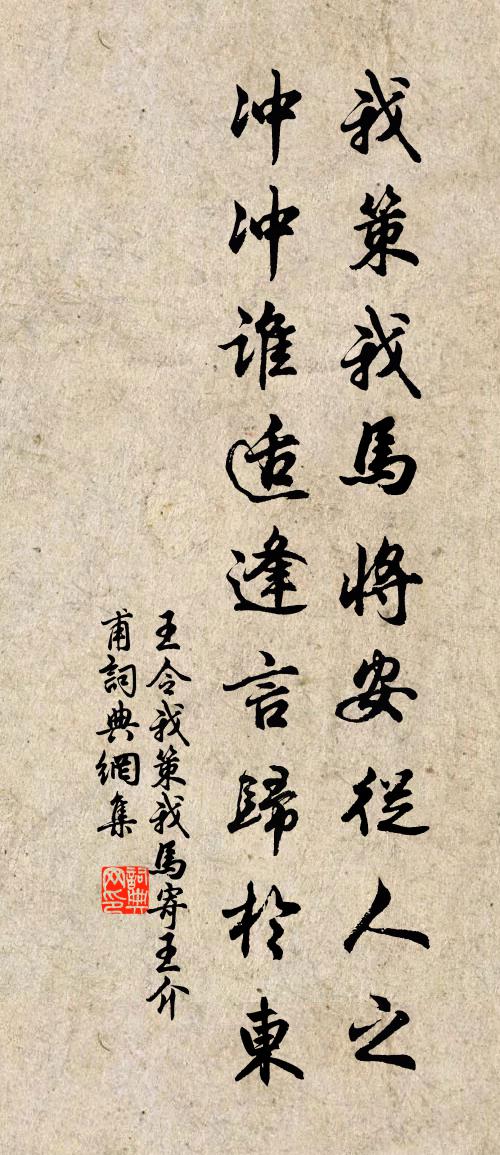 我策我馬將安從人之
冲冲誰适逢言歸於東
王令我策我馬寄王介
甫詞典網集
詞典
网印